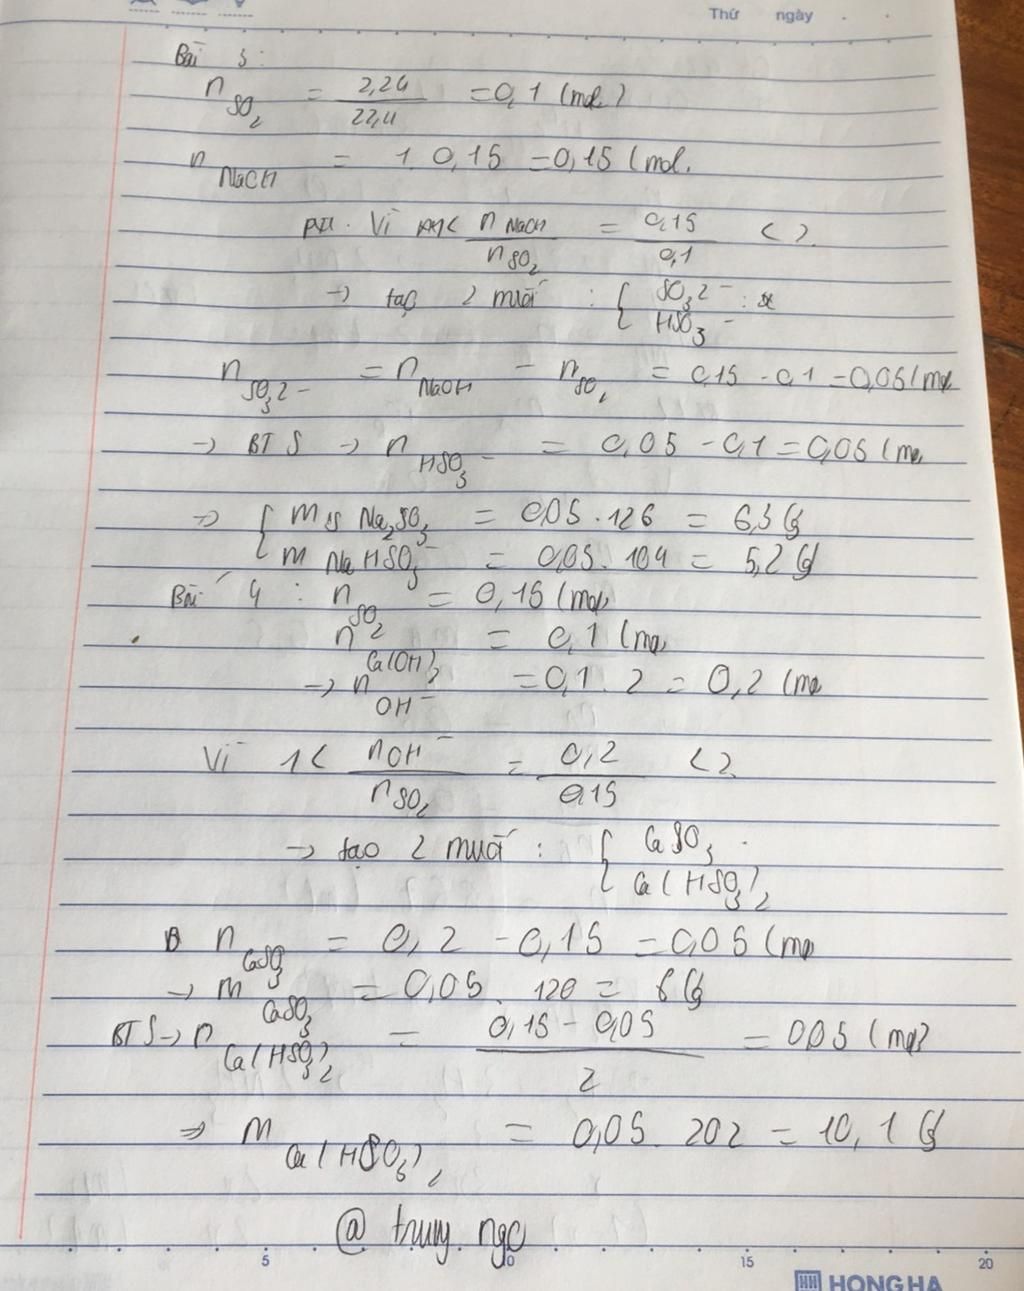 Thứ ngày
Bài 3:
n SO2 = 2,24 / 22,4 = 0,1 (mol)
n NaOH = 1. 0,15 = 0,15 (mol.
Vì 1< n NaOH / n SO2 = 0,15 / 0,1 < 2
→ tạo 2 muối : { SO3 2- :
HSO3 -
n SO3 2- = n NaOH - n SO2 = 0,15 - 0,1 = 0,05 (mol
→ BT S → n HSO3 - = 0,05 - 0,1 = 0,05 (mol
=> { m Na2SO3 = 0,05 . 126 = 6,3 G
m NaHSO3 = 0,05. 104 = 5,2 G
Bài 4 : n SO2 = 0,15 (mol)
n Ca(OH)2 = 0,1 (mol
→ n OH- = 0,1. 2 = 0,2 (mol
Vì 1 < nOH- / nSO2 = 0,2 / 0,15 < 2
→ tạo 2 muối : { CaSO3 .
Ca(HSO3)2
n CaSO3 = 0,2 - 0,15 = 0,05 (mol
→ m CaSO3 = 0,05. 120 = 6 G
BT S → n Ca(HSO3)2 = 0,15 - 0,05 / 2 = 0,05 (mol)
=> m Ca(HSO3)2 = 0,05. 202 = 10,1 G
@ trung. ngo
5 10 15 20
HH HONG HA